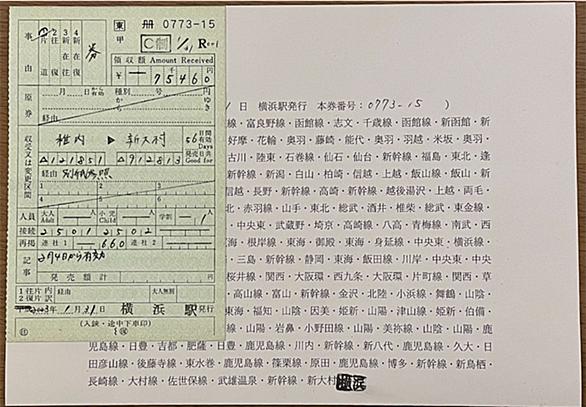 東 冊 0773-15
甲 C制 R
事由
1片道
2往復
3新在往
4新在復
券
領収額 Amount Received
¥ 75460 円
原券
月 日 種別 号 円
から ゆき
経由
収受又は変更区間
稚内 ▶ 新大村
56日間有効 Days
△121851 △912813 発売共 Good
経由 別紙参照
人員 大人 Adult 人 小児 Child 人 学割 1人
接続 2501 2502
再掲 連社1 660 連社2
記事 2月4日から有効
発売額計
1往片内
2復片訳
経由 大人無割
年1月31日 横浜駅発行
(入鋏・途中下車印)
日 横浜駅発行 本券番号:0773-15 )
線・富良野線・函館線・志文・千歳線・函館線・新函館・新
好摩・花輪・奥羽・藤崎・能代・奥羽・羽越・米坂・奥羽・
古川・陸東・石巻線・仙石・仙台・新幹線・福島・東北・逢
新幹線・新潟・白山・柏崎・信越・上越・飯山線・飯山・新
信越・長野・新幹線・高崎・新幹線・越後湯沢・上越・両毛・
北・赤羽線・山手・東北・総武・酒井・椎柴・総武・東金線・
・中央東・武蔵野・埼京・高崎線・八高・青梅線・南武・西
南・根岸線・東海・御殿・東海・身延線・中央東・横浜線・
・三島・新幹線・静岡・東海・飯田線・川岸・中央東・中央
桜井線・関西・大阪環・西九条・大阪環・片町線・関西・草
・高山線・富山・新幹線・金沢・北陸・小浜線・舞鶴・山陰・
東海・福知・山陰・因美・姫新・山陽・津山線・姫新・伯備・
線・山陽・岩鼻・小野田線・山陽・美祢線・山陰・山陽・鹿
児島線・日豊・吉都・肥薩・日豊・鹿児島・川内・新幹線・新八代・鹿児島線・久大・日
田彦山線・後藤寺線・東水巻・鹿児島線・篠栗線・原田・鹿児島線・博多・新幹線・新鳥栖・
長崎線・大村線・佐世保線・武雄温泉・新幹線・新大村